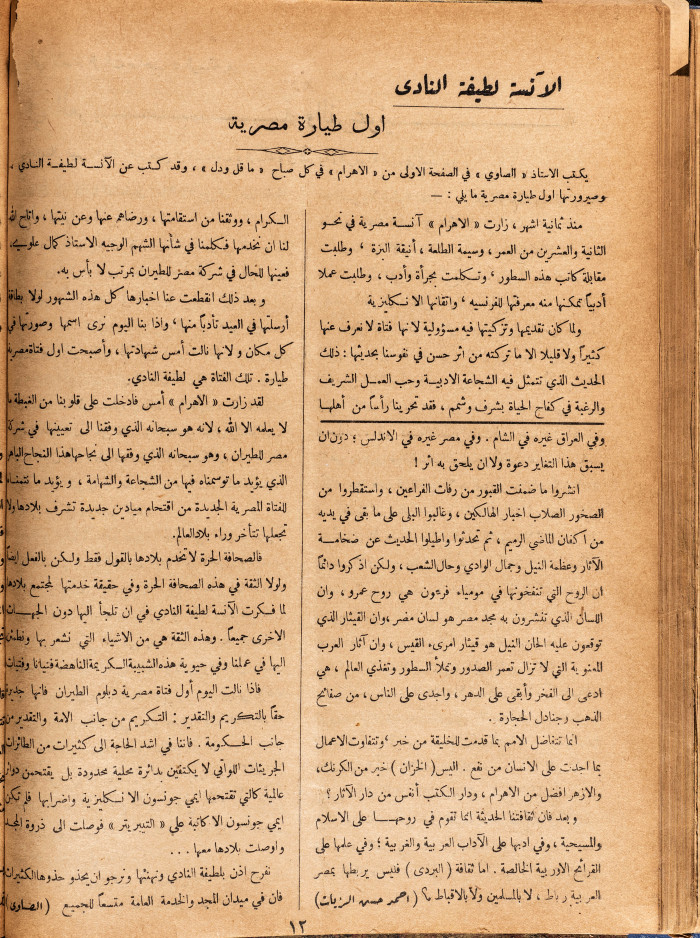 الآنسة لطيفة النادى
اول طيارة مصرية
يكتب الاستاذ « الصاوي » في الصفحة الاولى من « الاهرام » في كل صباح « ما قل ودل » ، وقد كتب عن الآنسة لطيفة النادي ،
وصيرورتها اول طيارة مصرية ما يلي : —
منذ ثمانية اشهر ، زارت « الاهرام » آنسة مصرية في نحو
الثانية والعشرين من العمر ، وسيمة الطلعة ، أنيقة البزة ، وطلبت
مقابلة كاتب هذه السطور ، وتكلمت بجرأة وأدب ، وطلبت عملا
أدبياً تمكنها منه معرفتها للفرنسيه ، واتقانها الانكليزية
ولما كان تقديمها وتزكيتها فيه مسؤولية لانها فتاة لا نعرف عنها
كثيراً ولا قليلا الا ما تركته من اثر حسن في نفوسنا بحديثها : ذلك
الحديث الذي تتمثل فيه الشجاعة الادبية وحب العمل الشريف
والرغبة في كفاح الحياة بشرف وشمم ، فقد تحرينا رأساً من أهلها
وفي العراق غيره في الشام . وفي مصر غيره في الاندلس ؛ دون ان
يسبق هذا التغاير دعوة ولا ان يلحق به اثر !
انشروا ما ضمنت القبور من رفات الفراعين ، واستقطروا من
الصخور الصلاب اخبار الهالكين ، وغالبوا البلى على ما بقى في يديه
من أكفان الماضي الرميم ، ثم تحدثوا واطيلوا الحديث عن ضخامة
الآثار وعظمة النيل وجمال الوادي وحال الشعب ، ولكن اذكروا دائماً
ان الروح التي تنفخونها في مومياء فرعون هي روح عمرو ، وان
اللسان الذي تنشرون به مجد مصر هو لسان مضر ، وان القيثار الذي
توقعون عليه الحان النيل هو قيثار امرىء القيس ، وان آثار العرب
المعنوية التي لا تزال تعمر الصدور وتملأ السطور وتغذي العالم ، هي
ادعى الى الفخر وأبقى على الدهر ، واجدى على الناس ، من صفائح
الذهب وجنادل الحجارة .
انما تتفاضل الامم بما قدمت للخليقة من خير ، وتتفاوت الاعمال
بما اجدت على الانسان من نفع . اليس ( الخزان ) خير من الكرنك ،
والازهر افضل من الاهرام ، ودار الكتب أنفس من دار الآثار ؟
و بعد فان ثقافتنا الحديثة انما تقوم في روحهـا على الاسلام
والمسيحية ، وفي ادبها على الآداب العربية والغربية ؛ وفي علمها على
القرائح الاوربية الخالصة . اما ثقافة ( البردى ) فليس يربطها بمصر
العربية رباط ، لا بالمسلمين ولا بالاقباط ؟ ( احمد حسن الزيات )
الكرام ، ووثقنا من استقامتها ، ورضاهم عنها وعن نيتها ، واتاح الله
لنا ان نخدمها فكلمنا في شأنها الشهم الوجيه الاستاذ كمال علوي ،
فعينها للحال في شركة مصر للطيران بمرتب لا بأس به .
و بعد ذلك انقطعت عنا اخبارها كل هذه الشهور لولا بطاقة
أرسلتها في العيد تأدباً منها ، واذا بنا اليوم نرى اسمها وصورتها في
كل مكان ولانها نالت أمس شهادتها ، وأصبحت اول فتاة مصرية
طيارة . تلك الفتاة هي لطيفة النادي.
لقد زارت « الاهرام » أمس فادخلت على قلوبنا من الغبطة ما
لا يعلمه الا الله ، لانه هو سبحانه الذي وفقنا الى تعيينها في شركة
مصر للطيران ، وهو سبحانه الذي وفقها الى نجاحها هذا النجاح
الذي يؤيد ما توسمناه فيها من الشجاعة والشهامة ، و يؤيد ما نتمناه
للفتاة المصرية الجديدة من اقتحام ميادين جديدة تشرف بلادها ولا
تجعلها تتأخر وراء بلاد العالم.
فالصحافة الحرة لا تخدم بلادها بالقول فقط ولكن بالفعل ايضاً
ولولا الثقة في هذه الصحافة الحرة وفي حقيقة خدمتها لمجتمع بلادها
لما فكرت الآنسة لطيفة النادي في ان تلجأ اليها دون الجهـات
الاخرى جميعاً . وهذه الثقة هي من الاشياء التي نشعر بها ونطمئن
اليها في عملنا وفي حيوية هذه الشبيبة الكريمة الناهضة فتيانا وفتيات
فاذا نالت اليوم أول فتاة مصرية دبلوم الطيران فانها جديرة
حقاً بالتكريم والتقدير : التكريم من جانب الامة والتقدير من
جانب الحكومة . فاننا في اشد الحاجة الى كثيرات من الطائرات
الجريئات اللواتي لا يكتفين بدائرة محلية محدودة بل يقتحمن دوائر
عالمية كالتي تقتحمها ايمي جونسون الانكليزية واضرابها فلم تكن
ايمي جونسون الا كاتبة على « التيبريتر » فوصلت الى ذروة المجد
واوصلت بلادها معها . . .
نفرح اذن بلطيفة النادي ونهنئها ونرجو ان يحذو حذوها الكثيرات
فان في ميدان المجد والخدمة العامة متسعاً للجميع ( الصاوى )
١٢